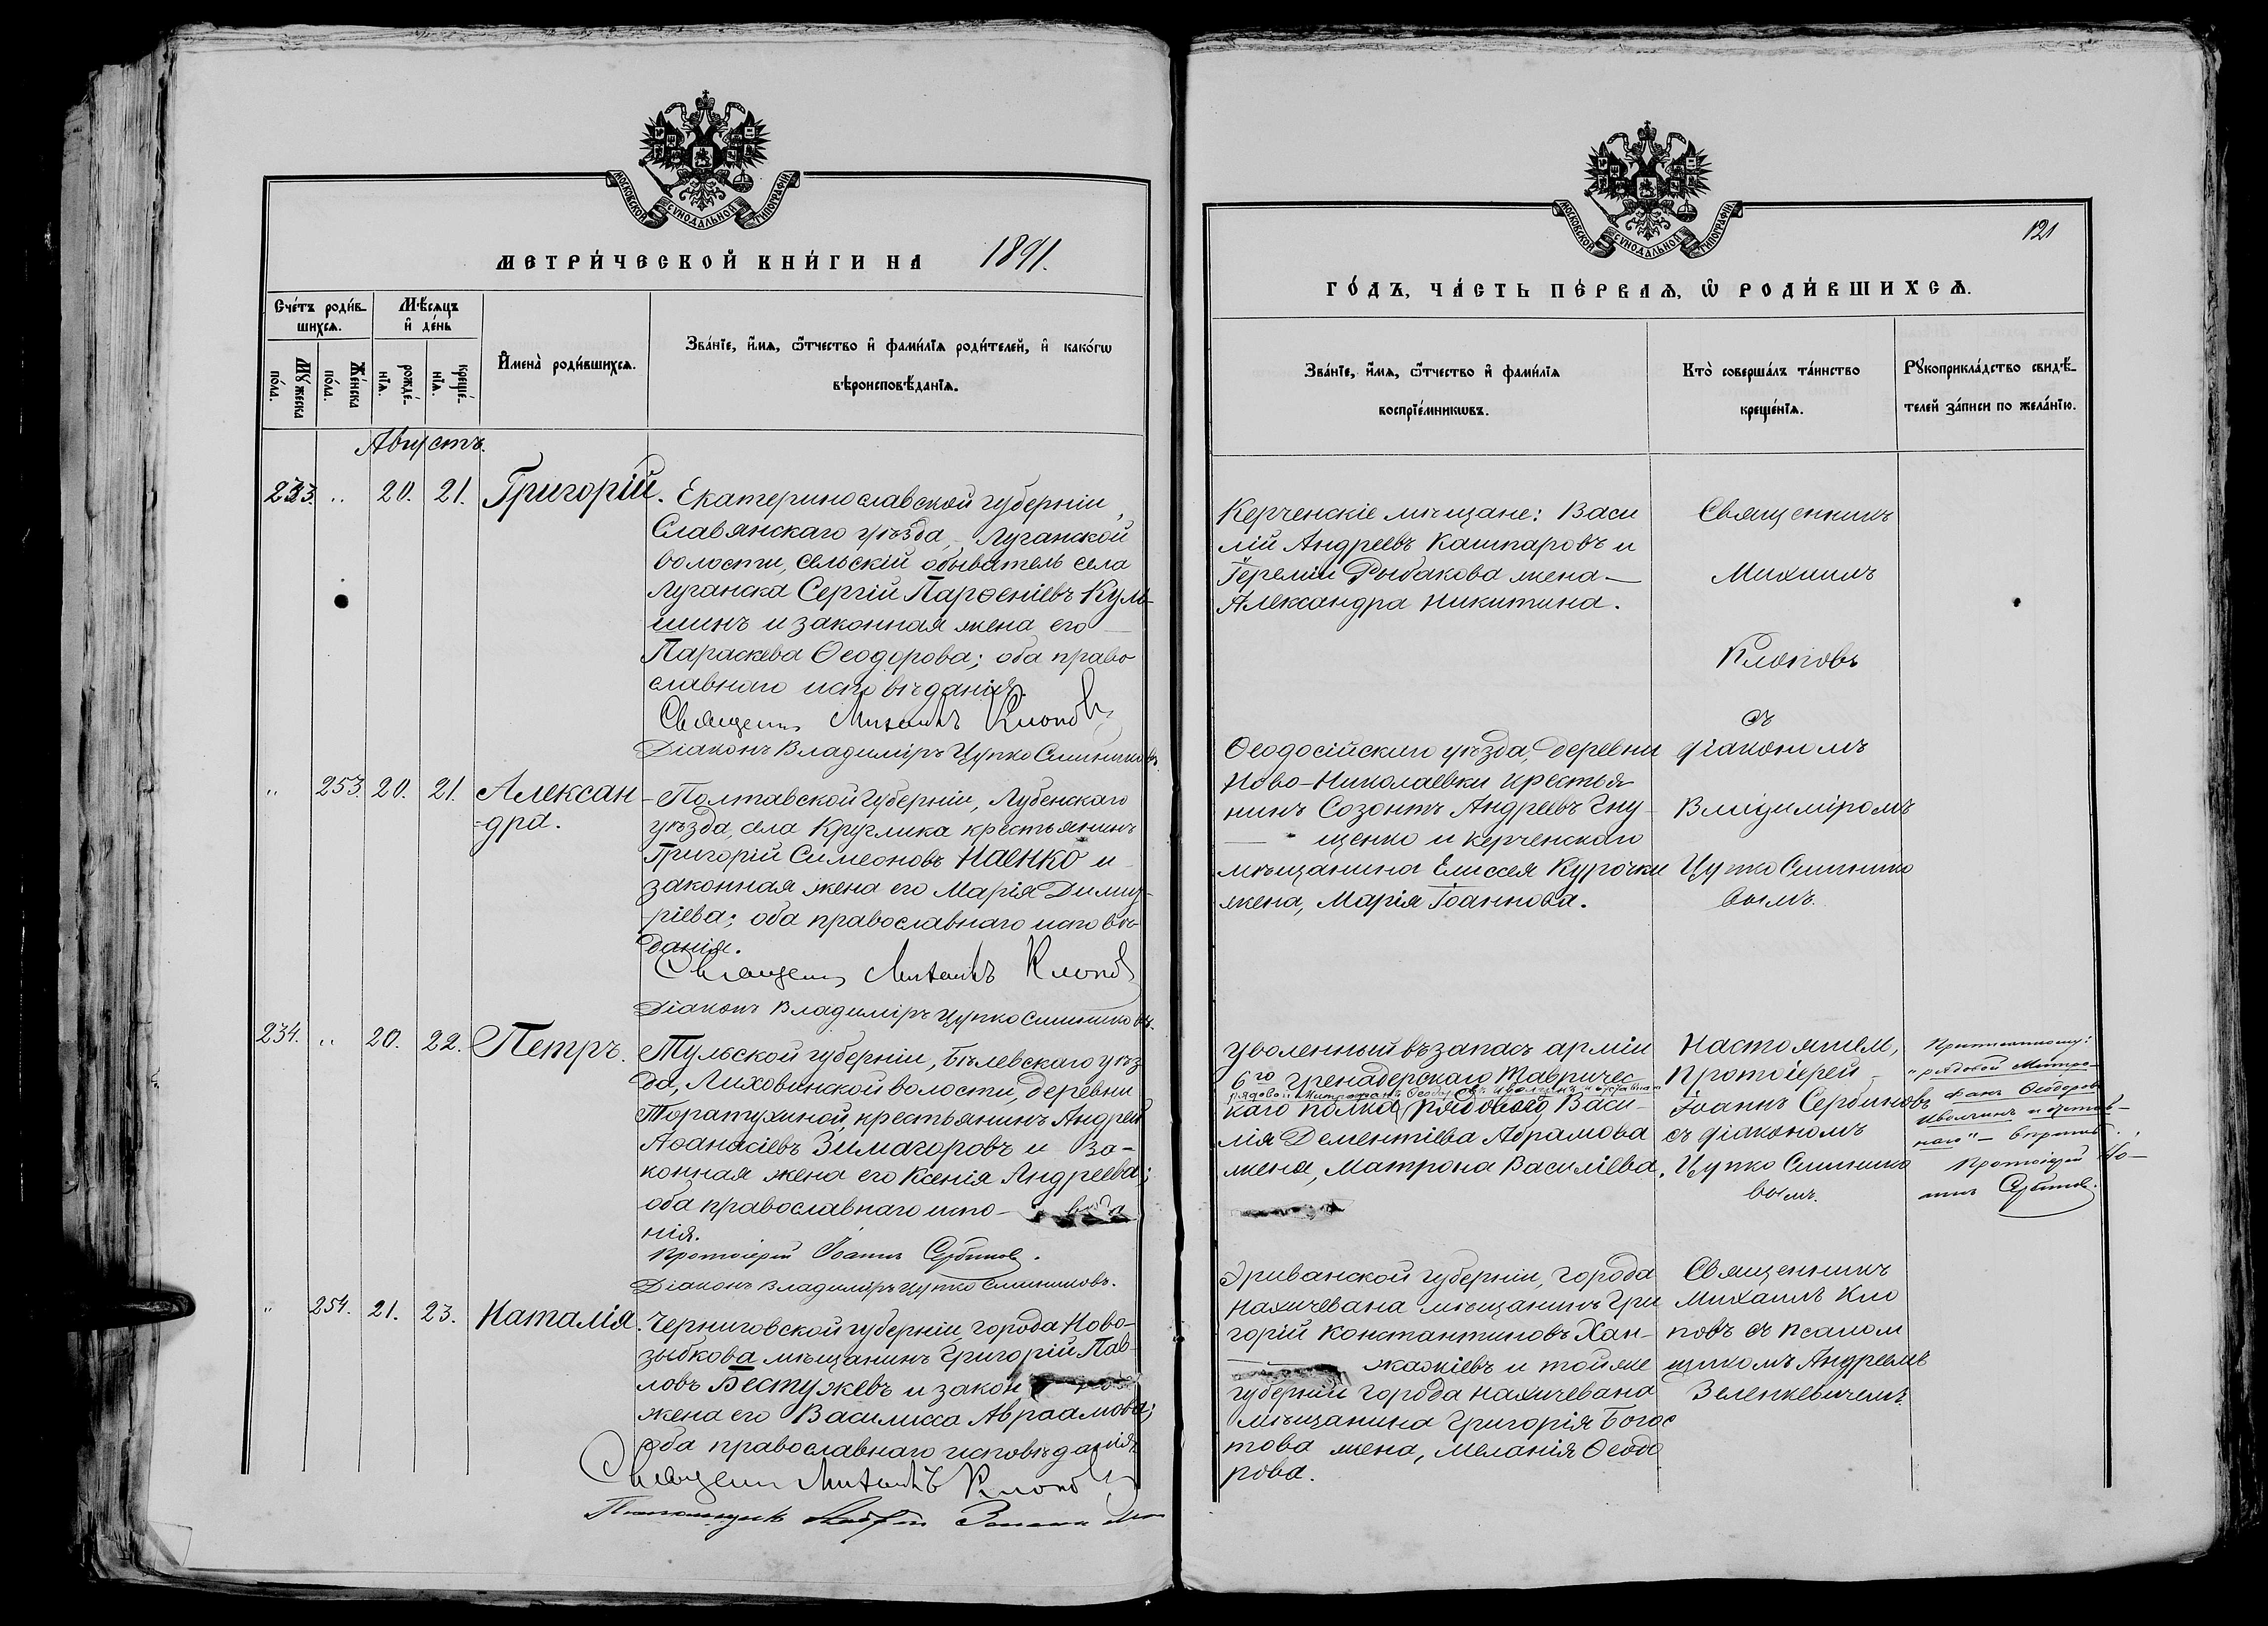 МОСКОВСКОЙ СУНОДАЛЬНОЙ ТИПОГРАФІИ
МЕТРИ́ЧЕСКОЙ КНИ́ГИ НА 1891.
Сче́тъ роди́в-
шихся.
Мѣ́сяцъ
и҆ де́нь
Мꙋ́жеска
по́ла.
Же́нска
по́ла.
рожде́-
нїя.
креще́-
нїя.
И҆мена̀ роди́вшихся.
Зва́нїе, и҆́мя, ѻ҆́тчество и҆ фами́лїя роди́телей, и҆ како́гѡ
вѣроисповѣ́данїя.
Августъ.
233. „ 20. 21. Григорій.
Екатеринославской губерніи,
Славянскаго уѣзда, Луганской
волости, сельскій обыватель села
Луганска Сергій Парѳеніевъ Куль-
шинъ и законная жена его
Параскева Ѳеодорова; оба право
славнаго исповѣданія.
Священ. Михаилъ Клоповъ
Діаконъ Владиміръ Цупко Слинниковъ.
„ 253. 20. 21. Алексан
-дра.
Полтавской губерніи, Лубенскаго
уѣзда, села Круглика крестьянинъ
Григорій Симеоновъ Наенко и
законная жена его Марія Димит-
ріева; оба православнаго исповѣ-
данія.
Священ. Михаилъ Клоповъ
Діаконъ Владиміръ Цупко Слинниковъ.
234. „ 20. 22. Петръ.
Тульской губерніи, Бѣлевскаго уѣз
да, Лиховинской волости, деревни
Торатухиной, крестьянинъ Андрей
Аѳанасіевъ Зимагоровъ и за-
конная жена его Ксенія Андреева;
оба православнаго испо- вѣда
нія.
Протоіерей Іоаннъ Сербиновъ.
Діаконъ Владиміръ Цупко Слинниковъ.
„ 254. 21. 23. Наталія.
Черниговской губерніи города Ново-
зыбкова мѣщанинъ Григорій Пав-
ловъ Бестужевъ и закон
жена его Василисса Авраамова;
оба православнаго исповѣданія.
Священ. Михаилъ Клоповъ
Псаломщикъ Андрей
МОСКОВСКОЙ СУНОДАЛЬНОЙ ТИПОГРАФІИ
121
ГО́ДЪ, ЧА́СТЬ ПЕ́РВАЯ, Ѡ҆ РОДИ́ВШИХСЯ.
Зва́нїе, и҆́мя, ѻ҆́тчество и҆ фами́лїя
воспрїе́мникѡвъ.
Кто̀ соверша́лъ та́инство
креще́нїя.
Рꙋкоприкла́дство свидѣ́-
телей за́писи по жела́нїю.
Керченскіе мѣщане: Васи
лій Андреевъ Кашпаровъ и
Іереміи Рыбакова жена
Александра Никитина.
Священникъ
Михаилъ
Клоповъ
съ
діакономъ
Владиміромъ
Цупко Слинико
вымъ.
Ѳеодосійскаго уѣзда, деревни
Ново-Николаевки крестья
нинъ Созонтъ Андреевъ Гну-
щенко и керченскаго
мѣщанина Елиссея Курочки
жена, Марія Іоаннова.
Уволенный въ запасъ арміи
6го Гренадерскаго Тавричес
рядовой Митрофанъ Ѳеодоровъ
каго полка рядоваго Васи-
лія Дементіева Абрамова
жена, Матрона Василіева.
Настоятель,
Протоіерей
Іоаннъ Сербиновъ
съ діакономъ
Цупко Слиннико
вымъ.
„рядовой Митро-
фанъ Ѳеодоровъ
Протоіерей Іоа-
ннъ Сербиновъ.
Эриванской губерніи, города
Нахичевана мѣщанинъ Гри
горій Константиновъ Хан-
жажіевъ и той же
губерніи города Нахичевана
мѣщанина Григорія Богос
това жена, Меланія Ѳеодо
рова.
Священникъ
Михаилъ Кло
повъ съ псалом
щикомъ Андреемъ
Зеленкевичемъ.